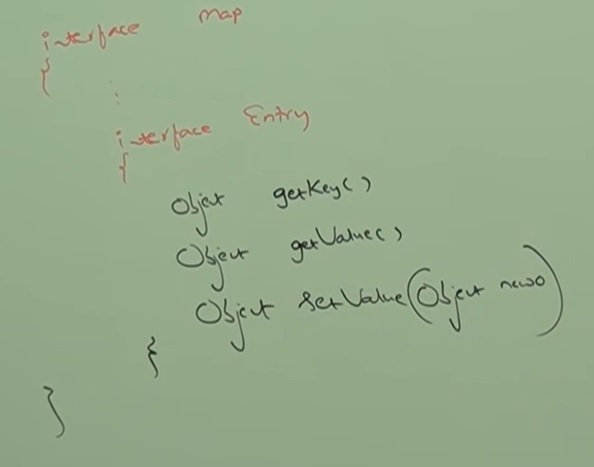 interface Map
{
:
interface Entry
{
Object getKey()
Object getValue()
Object setValue(Object newo)
}
}